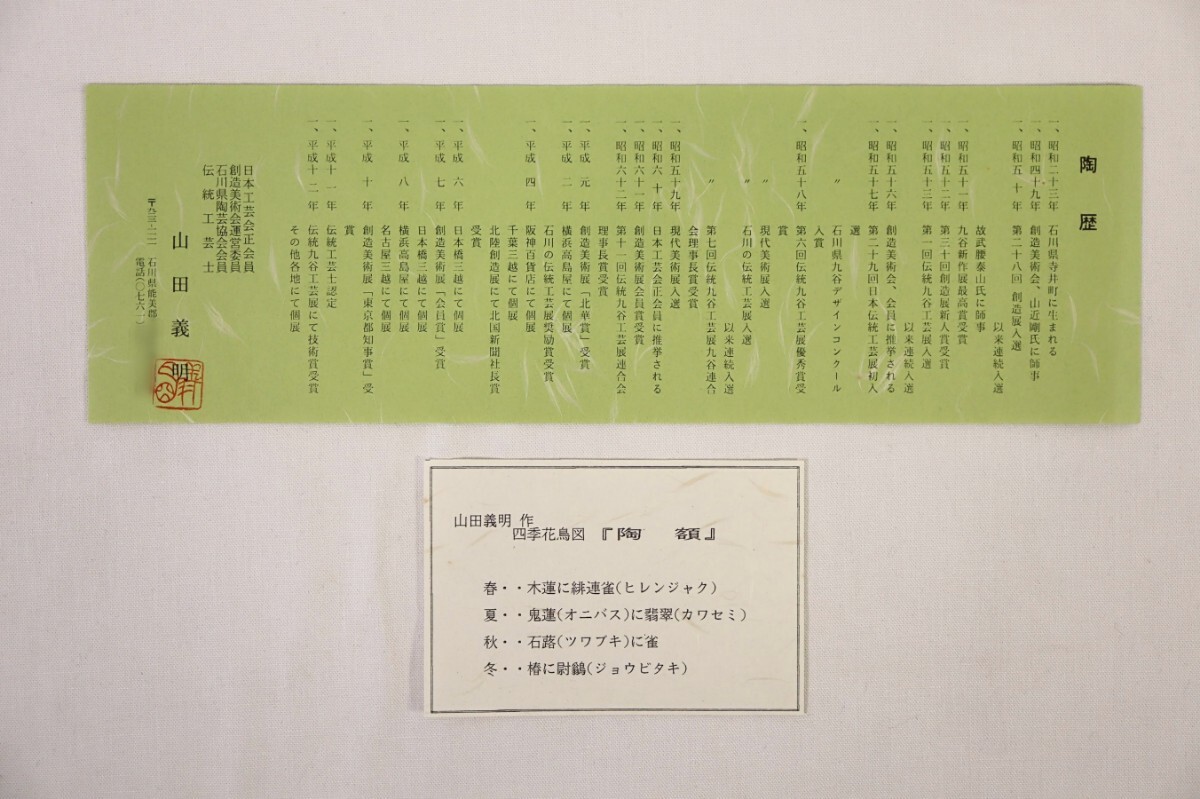 陶歴
一、昭和二十三年 石川県寺井町に生まれる
一、昭和四十九年 創造美術会、山近剛氏に師事
一、昭和五十年 第二十八回 創造展入選
以来連続入選
故武腰泰山氏に師事
一、昭和五十一年 九谷新作展最高賞受賞
一、昭和五十二年 第三十回創造展新人賞受賞
一、昭和五十三年 第一回伝統九谷工芸展入選
以来連続入選
一、昭和五十六年 創造美術会、会員に推挙される
一、昭和五十七年 第二十九回日本伝統工芸展初入
選
〃 石川県九谷デザインコンクール
入賞
一、昭和五十八年 第六回伝統九谷工芸展優秀賞受
賞
〃 現代美術展入選
〃 石川の伝統工芸展入選
以来連続入選
〃 第七回伝統九谷工芸展九谷連合
会理事長賞受賞
一、昭和五十九年 現代美術展入選
一、昭和六十年 日本工芸会正会員に推挙される
一、昭和六十一年 創造美術展会員賞受賞
一、昭和六十二年 第十一回伝統九谷工芸展連合会
理事長賞受賞
一、平成元年 創造美術展「北華賞」受賞
一、平成二年 横浜高島屋にて個展
石川の伝統工芸展奨励賞受賞
一、平成四年 阪神百貨店にて個展
千葉三越にて個展
北陸創造展にて北国新聞社長賞
受賞
一、平成六年 日本橋三越にて個展
一、平成七年 創造美術展「会員賞」受賞
日本橋三越にて個展
一、平成八年 横浜高島屋にて個展
名古屋三越にて個展
一、平成十年 創造美術展「東京都知事賞」受
賞
一、平成十一年 伝統工芸士認定
一、平成十二年 伝統九谷工芸展にて技術賞受賞
その他各地にて個展
日本工芸会正会員
創造美術会運営委員
石川県陶芸協会会員
伝統工芸士
山田義明
石川県能美郡
電話(〇七六一)
山田義明 作
四季花鳥図 『陶 額』
春・・木蓮に緋連雀(ヒレンジャク)
夏・・鬼蓮(オニバス)に翡翠(カワセミ)
秋・・石蕗(ツワブキ)に雀
冬・・椿に尉鶲(ジョウビタキ)